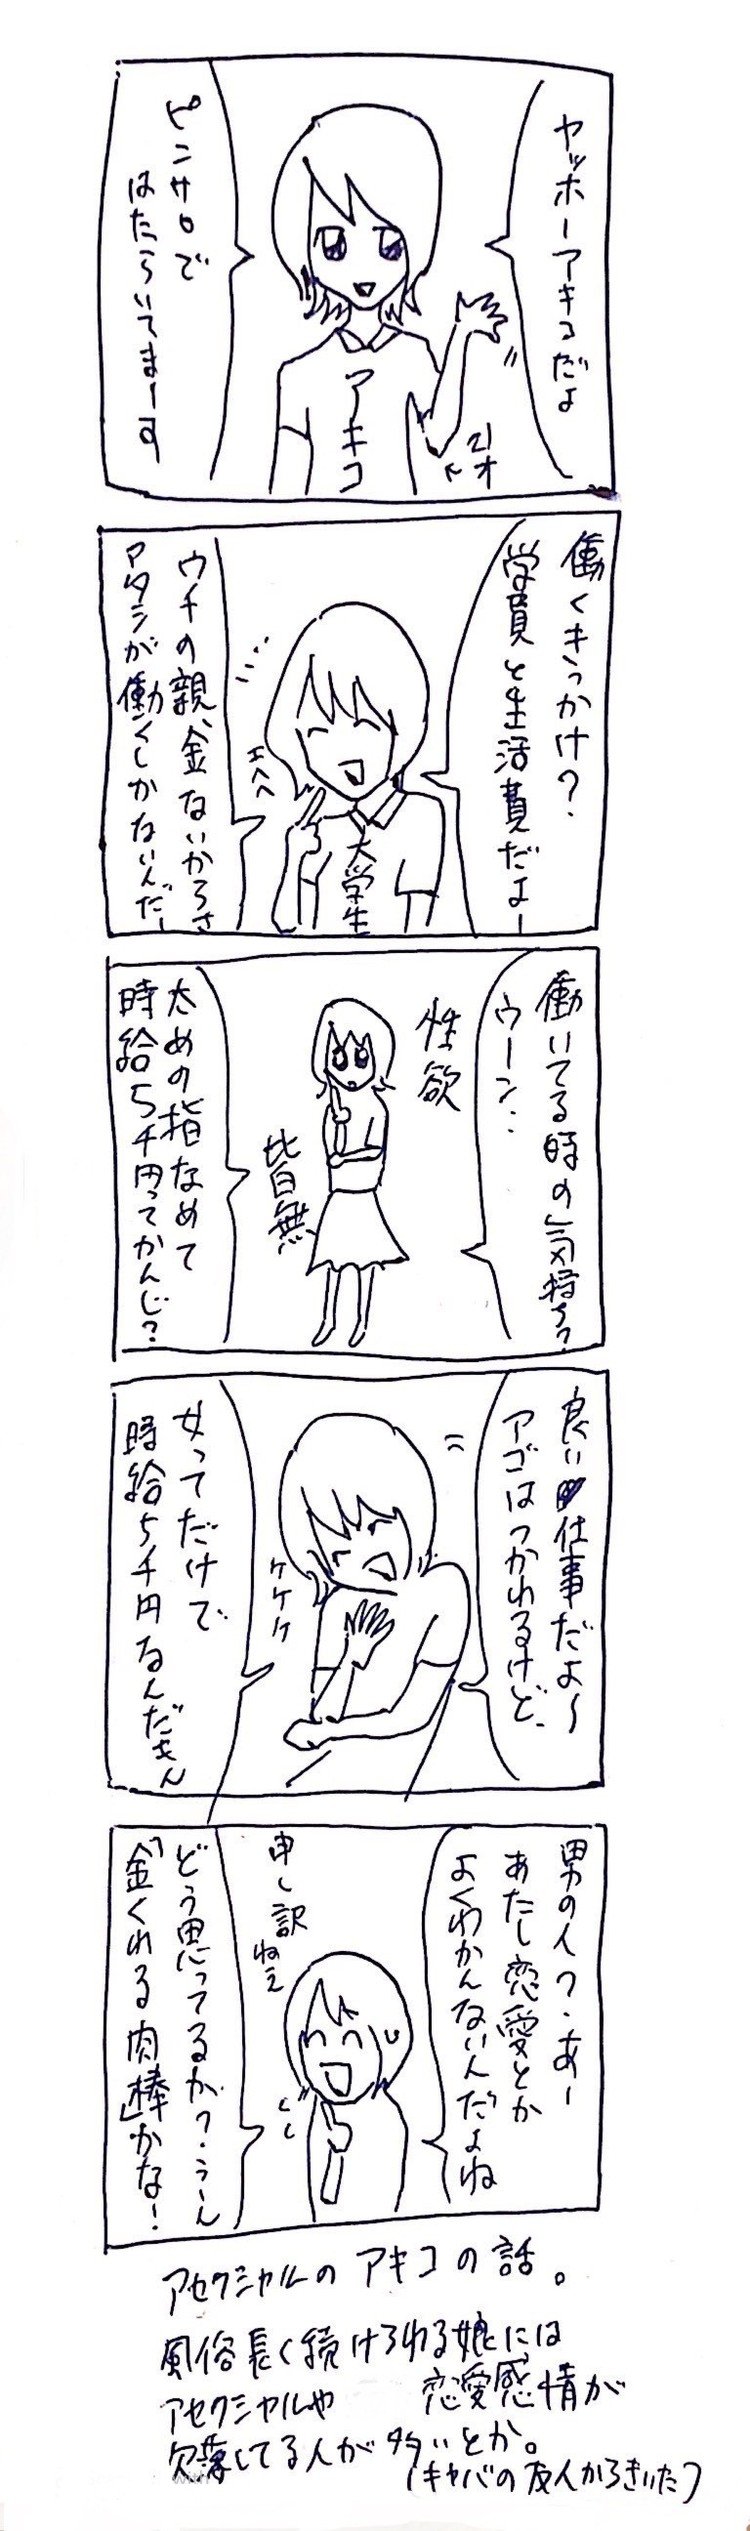 ヤッホーアキコだよ
ピンサロで
はたらいてまーす
アキコ
21才
働くきっかけ?
学費と生活費だよー
ウチの親、金ないからさ
アタシが働くしかないんだー
エヘヘ
大学生
働いてる時の気持ち?
ウーン…
性欲
皆無
太めの指なめて
時給5千円ってかんじ?
良い仕事だよ～
アゴはつかれるけど、
ケケケ
女ってだけで
時給5千円なんだもん
男の人?・あー
あたし恋愛とか
よくわかんないんだよね
申し訳ねえ
どう思ってるか?・うーん
「金くれる肉棒」かな!
アセクシャルのアキコの話。
風俗長く続けられる娘には
アセクシャルや 恋愛感情が
欠落してる人が多いとか。
(キャバの友人からきいた)